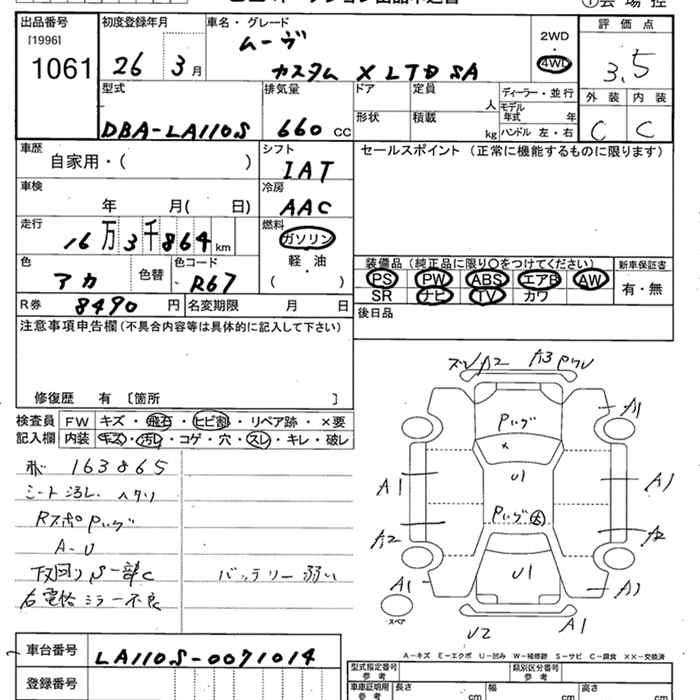 出品番号 [1996] 1061
初度登録年月 26 3月
車名・グレード ムーヴ
カスタム X LTD SA
2WD・4WD
評価点 3.5
外装 内装
C C
型式 DBA-LA110S
排気量 660 CC
ドア 形状
定員 人
積載 kg
ディーラー・並行
モデル年式 年
ハンドル 左・右
車歴 自家用・( )
シフト IAT
車検 年 月( 日)
冷房 AAC
走行 16万3千864km
燃料 ガソリン
軽・油
( )
色 アカ 色替
色コード R67
R券 8490円
名変期限 月 日
セールスポイント (正常に機能するものに限ります)
装備品(純正品に限り○をつけてください)
PS PW ABS エアB AW
SR ナビ TV カワ
新車保証書
有・無
後日品
注意事項申告欄(不具合内容等は具体的に記入して下さい)
修復歴 有 〔箇所 〕
検査員 FW キズ・飛石・ヒビ割・リペア跡・×要
記入欄 内装 キズ・汚レ・コゲ・穴・スレ・キレ・破レ
163865
シート汚レ ヘタリ
A-U
下回りS一部C
バッテリー弱い
右電格ミラー不良
A2 A3
A1
U1
A1 A1
A2 A2
A1 U1
U2 A1
スペア
A-キズ E-エクボ U-凹み W-補修跡 S-サビ C-腐食 ××-交換済
車台番号 LA110S-0071014
登録番号
型式指定番号 参考
類別区分番号 参考
車庫証明用 参考
長さ cm
幅 cm
高さ cm